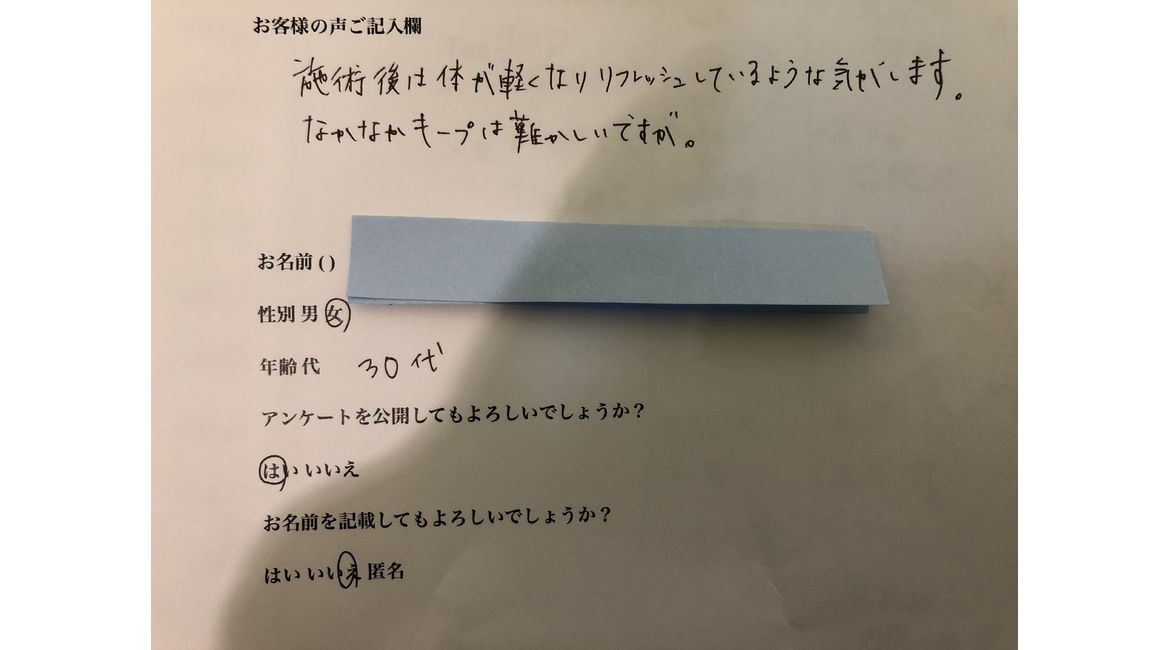 お客様の声ご記入欄
施術後は体が軽くなりリフレッシュしているような気がします。
なかなかキープは難かしいですが。
お名前 ( )
性別 男 女
年齢 代 30代
アンケートを公開してもよろしいでしょうか？
はい いいえ
お名前を記載してもよろしいでしょうか？
はい いいえ 匿名